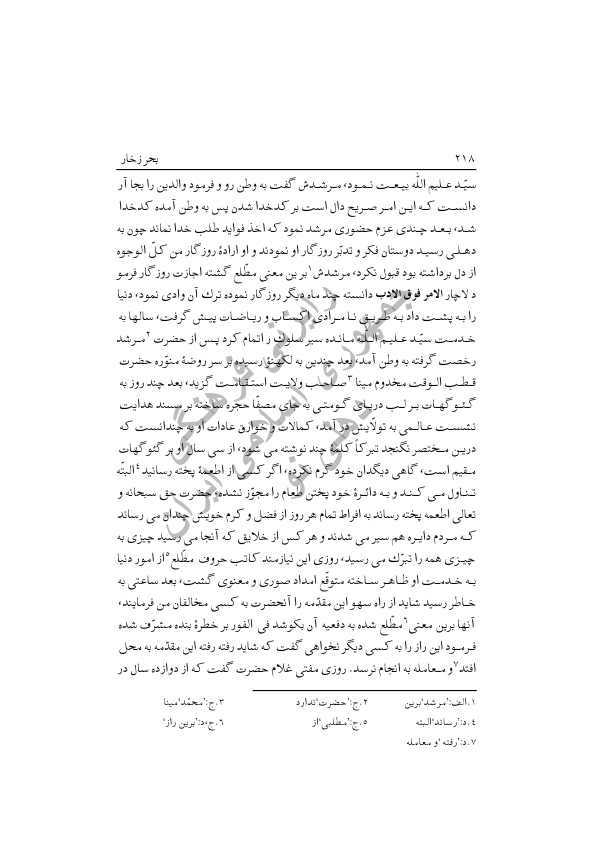 ۲۱۸ بحر زخار
سیّد علیم الله بیعت نمود، مرشدش گفت به وطن رو و فرمود والدین را بجا آر
دانست که این امر صریح دال است بر کدخدا شدن پس به وطن آمده کدخدا
شد، بعد چندی عزم حضوری مرشد نمود که اخذ فواید طلب خدا نماند چون به
دهلی رسید دوستان فکر و تدبّر روزگار او نمودند و او ارادهٔ روزگار من کلّ الوجوه
از دل برداشته بود قبول نکرد، مرشدش۱ برین معنی مطّلع گشته اجازت روزگار فرمو
د لاچار الامر فوق الادب دانسته چند ماه دیگر روزگار نموده ترك آن وادی نمود، دنیا
را به پشت داد به طریق نامرادی اکتساب و ریاضات پیش گرفت، سالها به
خدمت سیّد علیم الله مانده سیر سلوك را تمام کرد پس از حضرت۲ مرشد
رخصت گرفته به وطن آمد، بعد چندین به لکهنؤ رسیده بر سر روضهٔ منوّره حضرت
قطب الوقت مخدوم مینا۳ صاحب ولایت استقامت گزید، بعد چند روز به
گئوگهات بر لب دریای گومتی به جای مصفّا حجره ساخته بر مسند هدایت
نشست عالمی به تولّایش در آمد، کمالات و خوارق عادات او به چندانست که
درین مختصر نگنجد تبرکاً کلمهٔ چند نوشته می شود، از سی سال او بر گئوگهات
مقیم است، گاهی دیگدان خود گرم نکرده، اگر کسی از اطعمهٔ پخته رسانید۴ البتّه
تناول می کند و به دائرهٔ خود پختن طعام را مجوّز نشده، حضرت حق سبحانه و
تعالی اطعمه پخته رساند به افراط تمام هر روز از فضل و کرم خویش چندان می رساند
که مردم دایره هم سیر می شدند و هر کس از خلایق که آنجا می رسید چیزی به
چیزی همه را تبرّك می رسید، روزی این نیازمند کاتب حروف مطّلع۵ از امور دنیا
به خدمت او ظاهر ساخته متوقّع امداد صوری و معنوی گشت، بعد ساعتی به
خاطر رسید شاید از راه سهو این مقدّمه را آنحضرت به کسی مخالفان من فرمایند،
آنها برین معنی۶ مطّلع شده به دفعیه آن بکوشد فی الفور بر خطرهٔ بنده مشرّف شده
فرمود این راز را به کسی دیگر نخواهی گفت که شاید رفته رفته این مقدّمه به محل
افتد۷ و معامله به انجام نرسد. روزی مفتی غلام حضرت گفت که از دوازده سال در
۱.الف:'مرشد'برین ۲.ج:'حضرت'ندارد ۳.ج:'محمّد'مینا
۴.د:'رساند'البته ۵.ج:'مطلبی'از ۶.ج،د:'برین راز'
۷.د:'رفته'و معامله
رایزنی فرهنگی
جمهوری اسلامی ایران
دهلی نو